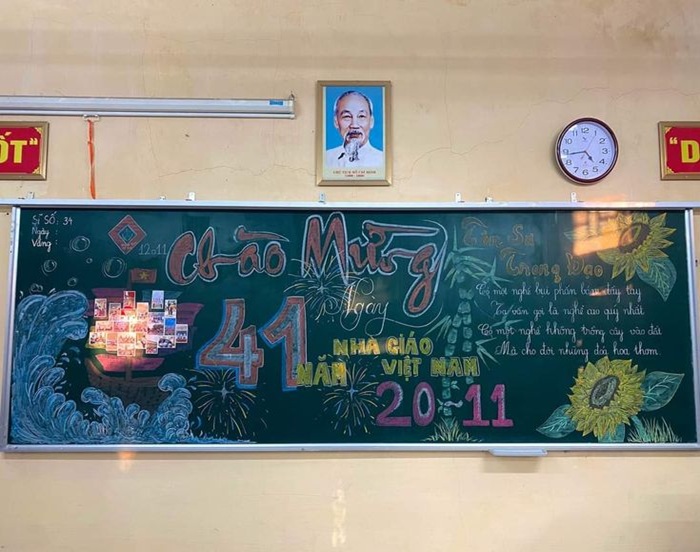 ỐT"
CHỦ TỊCH HỒ CHÍ MINH
"D
Sĩ SỐ: 34
Ngày
Vắng :
12a11
Chào Mừng
Ngày
41 NĂM
NHÀ GIÁO
VIỆT NAM
20-11
Tôn Sư
Trọng Đạo
Có một nghề bụi phấn bám đầy tay
Ta vẫn gọi là nghề cao quý nhất
Có một nghề không trồng cây vào đất
Mà cho đời những đoá hoa thơm.